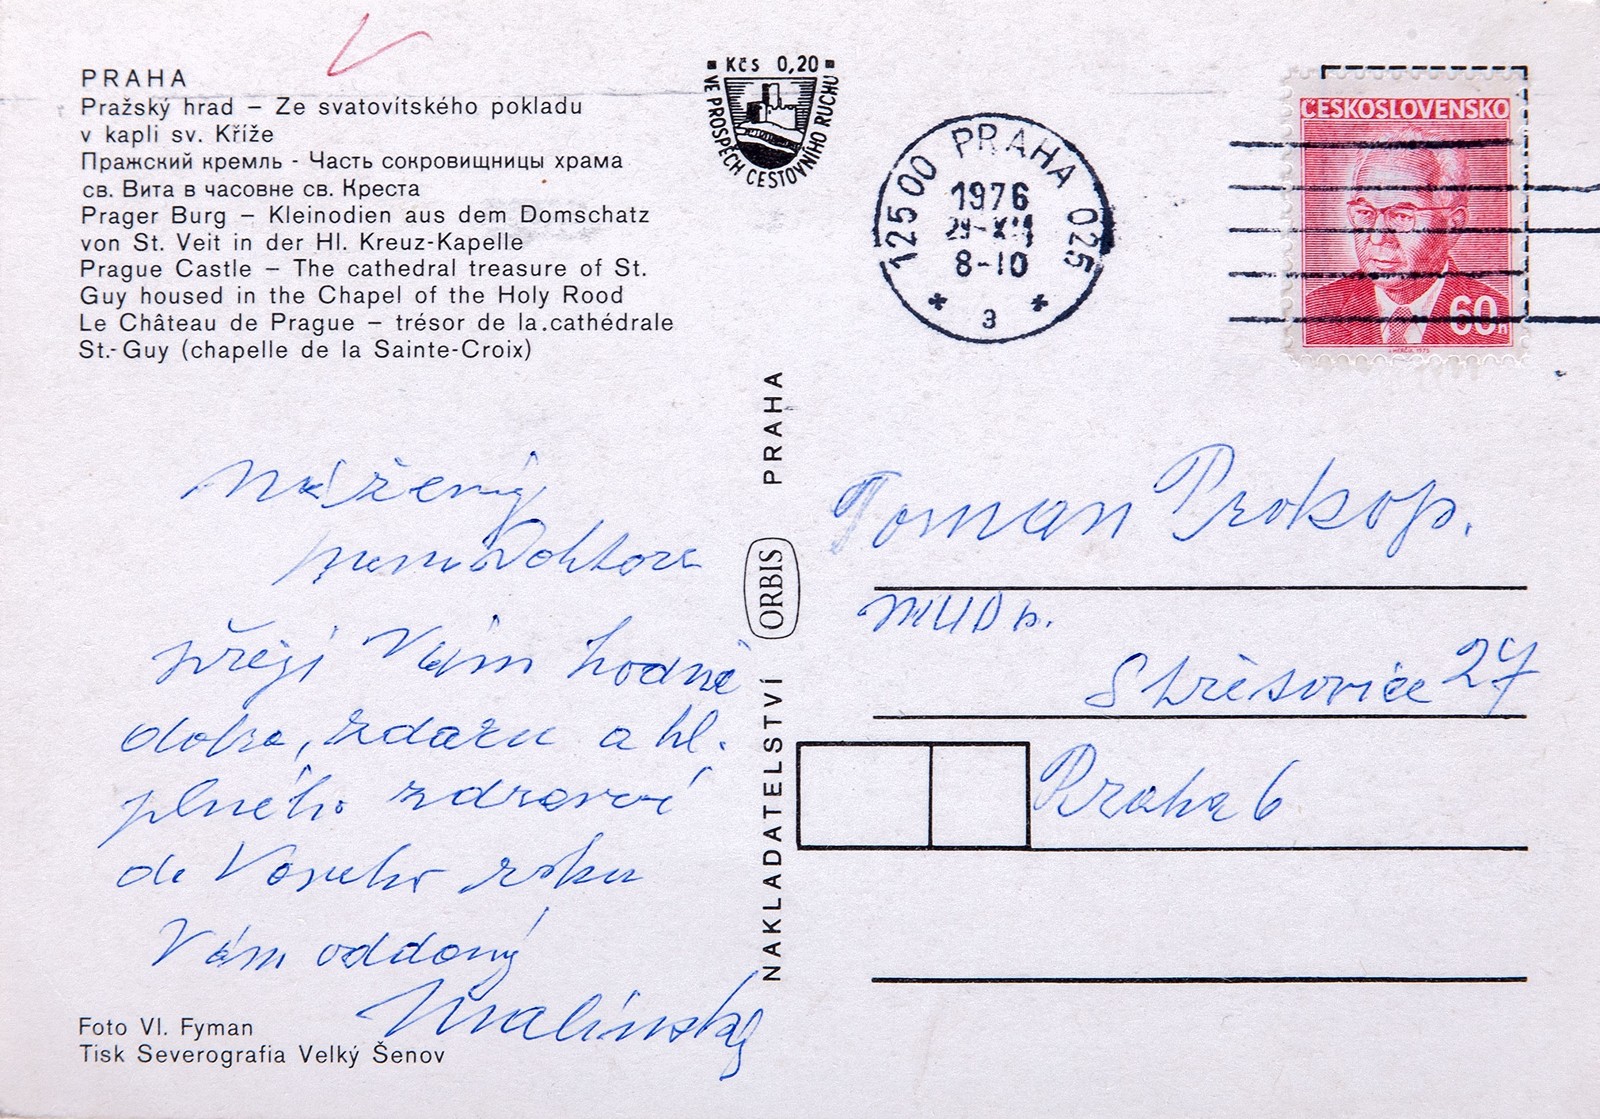 PRAHA
Pražský hrad – Ze svatovítského pokladu
v kapli sv. Kříže
Пражский кремль - Часть сокровищницы храма
св. Вита в часовне св. Креста
Prager Burg – Kleinodien aus dem Domschatz
von St. Veit in der Hl. Kreuz-Kapelle
Prague Castle – The cathedral treasure of St.
Guy housed in the Chapel of the Holy Rood
Le Château de Prague – trésor de la.cathédrale
St.-Guy (chapelle de la Sainte-Croix)
Kčs 0,20
VE PROSPĚCH CESTOVNÍHO RUCHU
125 00 PRAHA 025
1976
8-10
3
ČESKOSLOVENSKO
60h
Vážený
pane Doktore
přeji Vám hodně
dobra, zdaru a hl.
plného zdraví
do Nového roku
Vám oddaný
Malínský
NAKLADATELSTVÍ ORBIS PRAHA
Toman Prokop.
MUDr.
Střešovice 27
Praha 6
Foto Vl. Fyman
Tisk Severografia Velký Šenov